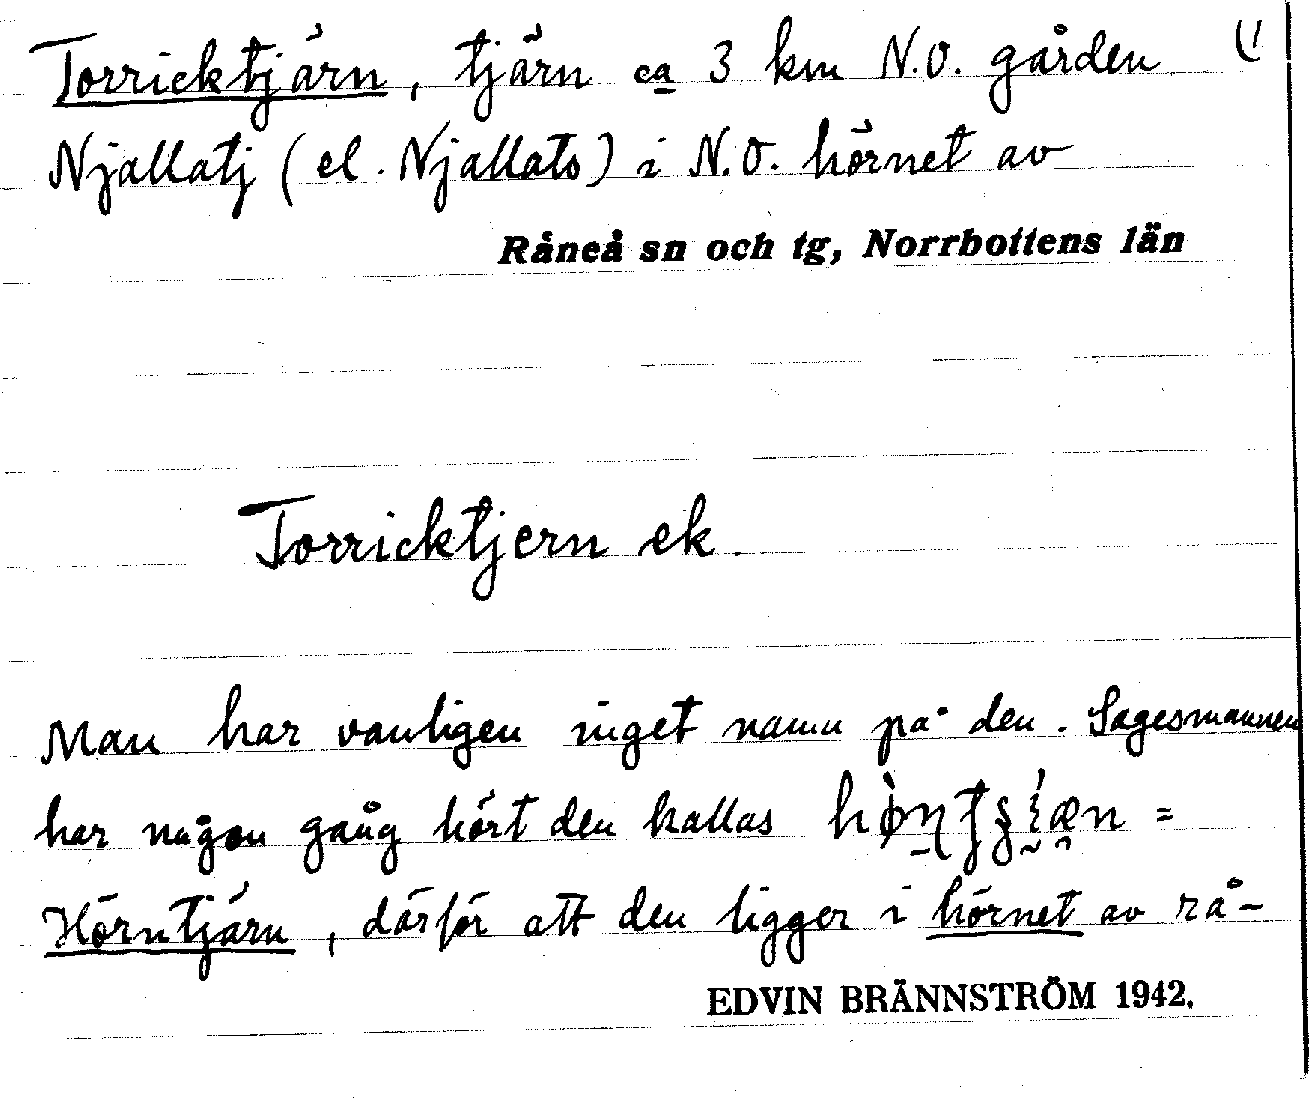 Torricktjärn, tjärn ca 3 km N.O. gården (1
Njallatj (el. Njallats) i N.O. hörnet av
Råneå sn och tg, Norrbottens län
Torricktjern ek.
Man har vanligen inget namn på den. Sagesmannen
har någon gång hört den kallas =
Hörntjärn, därför att den ligger i hörnet av rå-
EDVIN BRÄNNSTRÖM 1942.